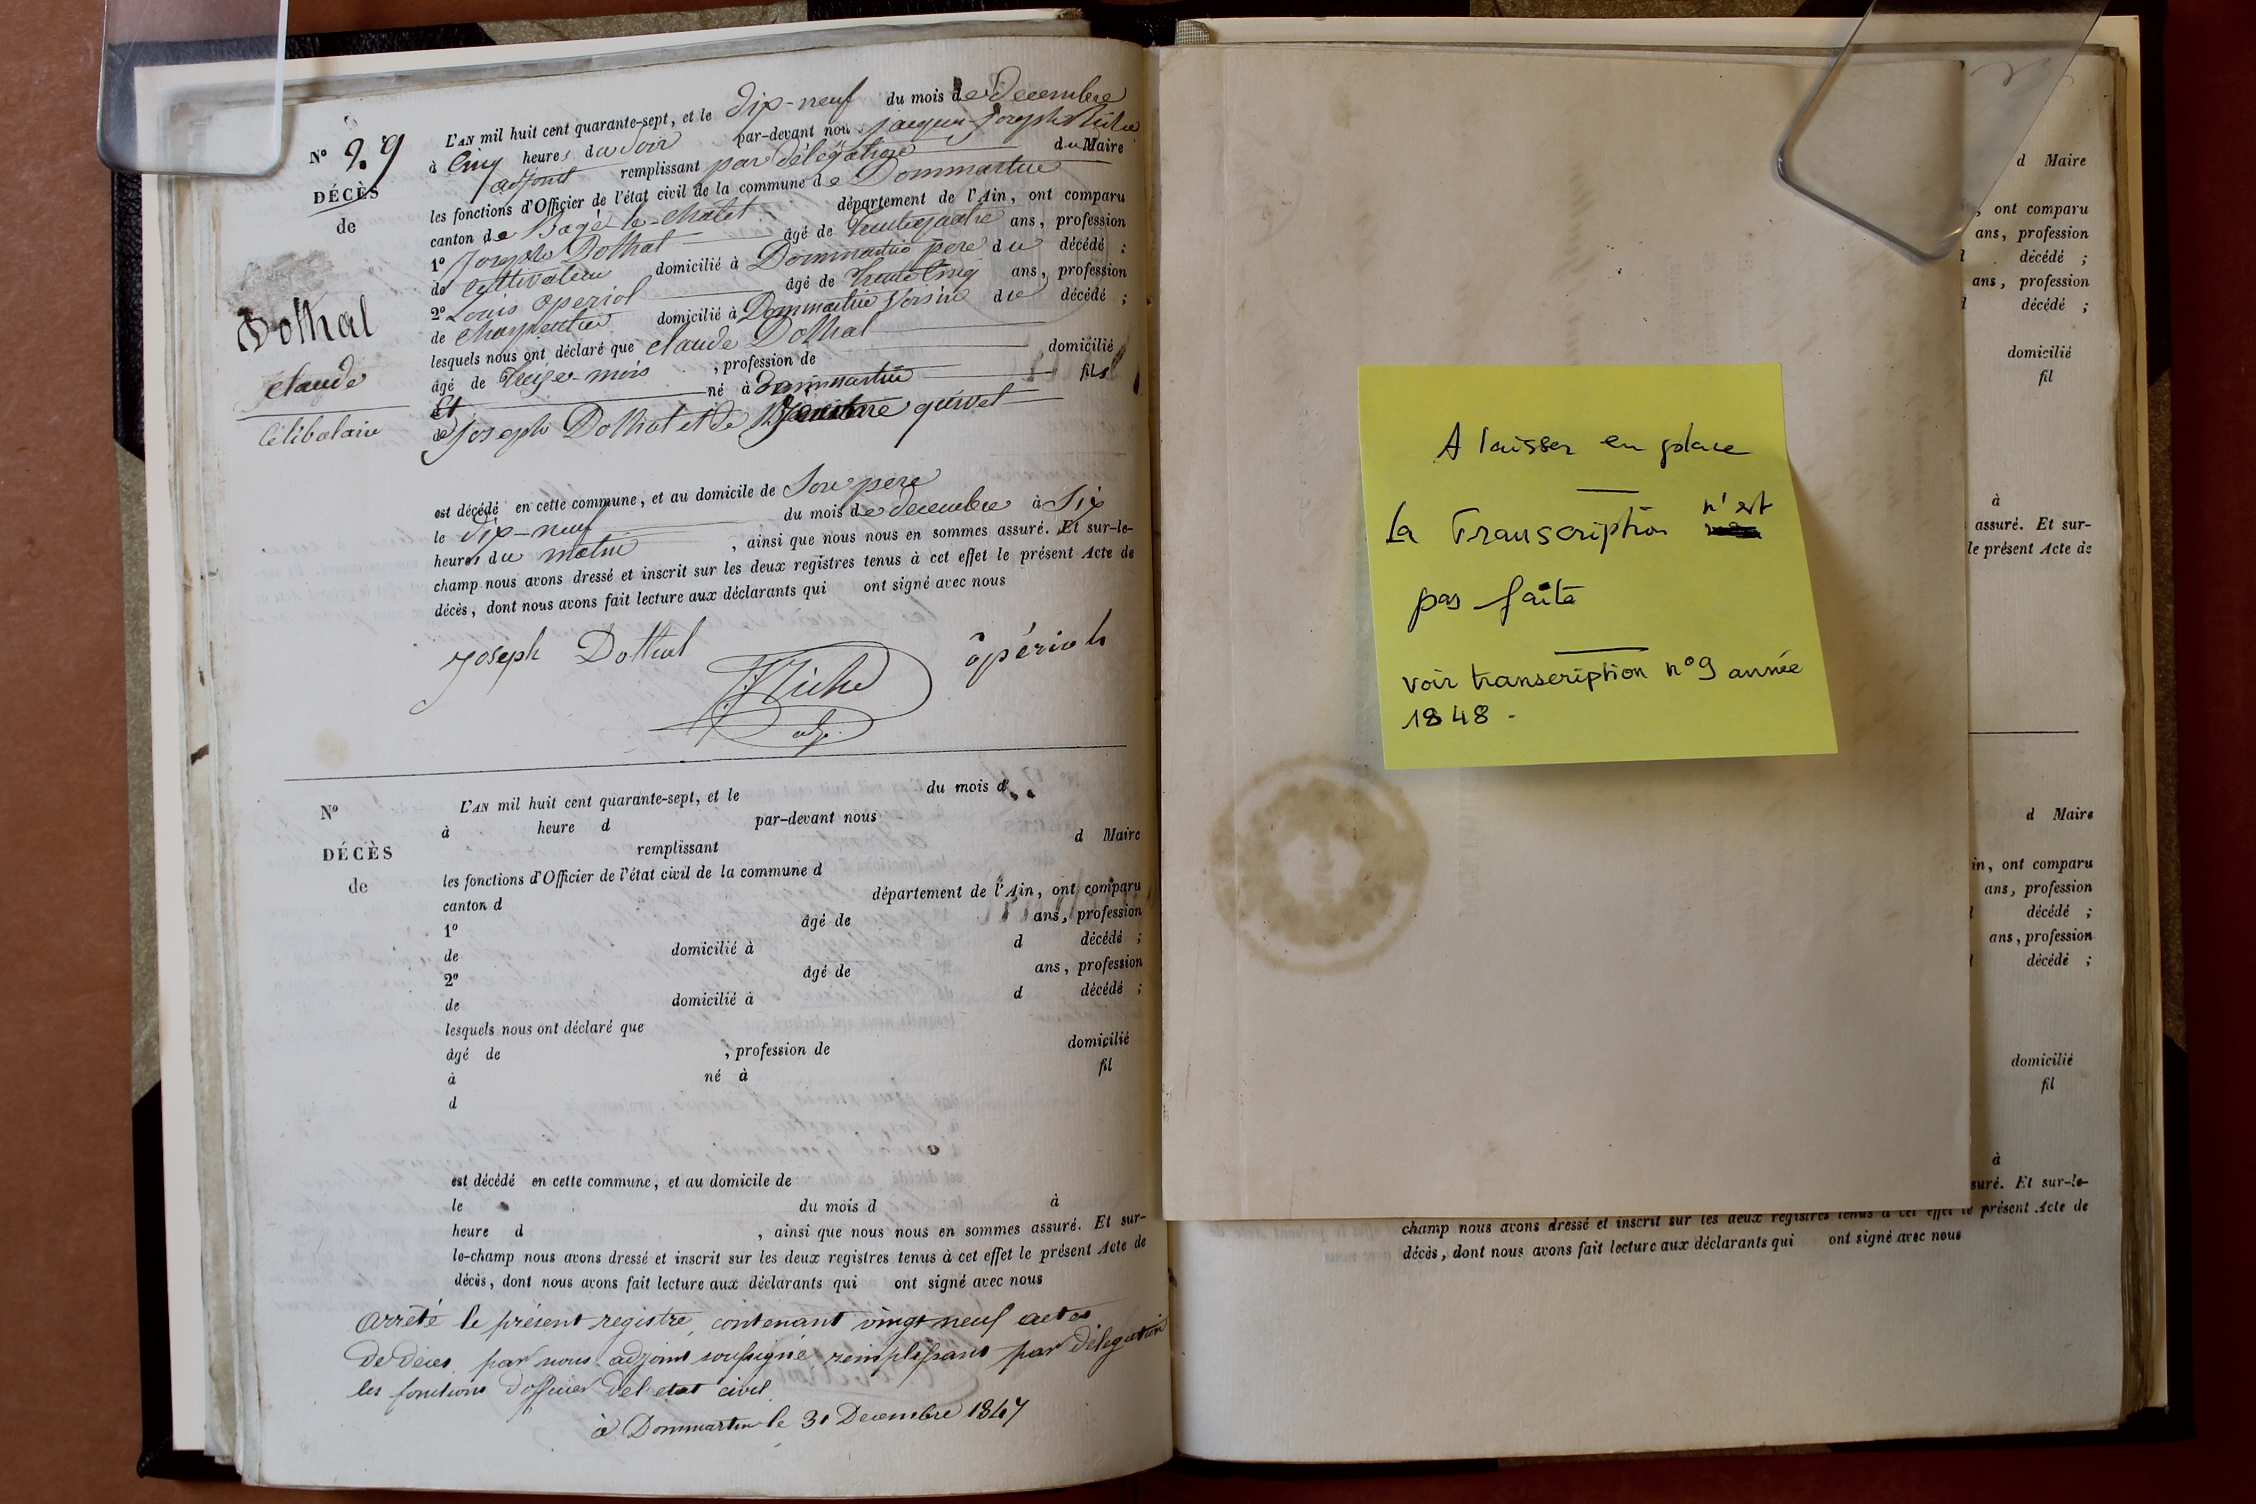 N° 29
DÉCÈS
de
Dothal
claude
Célibataire
L'AN mil huit cent quarante-sept, et le Dix-neuf du mois de Decembre
à Cinq heures du Soir par-devant nous jacques-joseph
adjoint remplissant par délégation du Maire
les fonctions d'Officier de l'état civil de la commune de Dommartin
canton de Bagé-le-Chatel département de l'Ain, ont comparu
1° Joseph Dothal âgé de trente quatre ans, profession
de cultivateur domicilié à Dommartin père du décédé ;
2° Louis Operiol âgé de trente Cinq ans, profession
de Charpentier domicilié à Dommartin Voisin du décédé ;
lesquels nous ont déclaré que claude Dothal
âgé de treize mois , profession de domicilié
et né à dommartin fils
de joseph Dothal et de quivet
est décédé en cette commune, et au domicile de Son pere
le dix-neuf du mois de decembre à Six
heures du matin , ainsi que nous nous en sommes assuré. Et sur-le-
champ nous avons dressé et inscrit sur les deux registres tenus à cet effet le présent Acte de
décès, dont nous avons fait lecture aux déclarants qui ont signé avec nous
joseph Dothal opériol
adj.
N°
DÉCÈS
de
L'AN mil huit cent quarante-sept, et le du mois d
à heure d par-devant nous
remplissant d Maire
les fonctions d'Officier de l'état civil de la commune d
canton d département de l'Ain, ont comparu
1° âgé de ans, profession
de domicilié à d décédé ;
2° âgé de ans, profession
de domicilié à d décédé ;
lesquels nous ont déclaré que
âgé de , profession de domicilié
à né à fil
d
est décédé en cette commune, et au domicile de
le du mois d à
heure d , ainsi que nous nous en sommes assuré. Et sur-
le-champ nous avons dressé et inscrit sur les deux registres tenus à cet effet le présent Acte de
décès, dont nous avons fait lecture aux déclarants qui ont signé avec nous
arrêté le présent registre, contenant vingt neuf actes
de décès par nous adjoint soussigné, remplissant par délégation
les fonctions d'officier del etat civil
à Dommartin le 31 Decembre 1847
A laisser en place
La Transcription n'est
pas faite
voir transcription n°9 année
1848 -
d Maire
, ont comparu
ans, profession
d décédé ;
ans, profession
d décédé ;
domicilié
fil
à
assuré. Et sur-
le présent Acte de
d Maire
in, ont comparu
ans, profession
d décédé ;
ans, profession
d décédé ;
domicilié
fil
à
suré. Et sur-le-
champ nous avons dressé et inscrit sur les deux registres tenus à cet effet le présent Acte de
décès, dont nous avons fait lecture aux déclarants qui ont signé avec nous